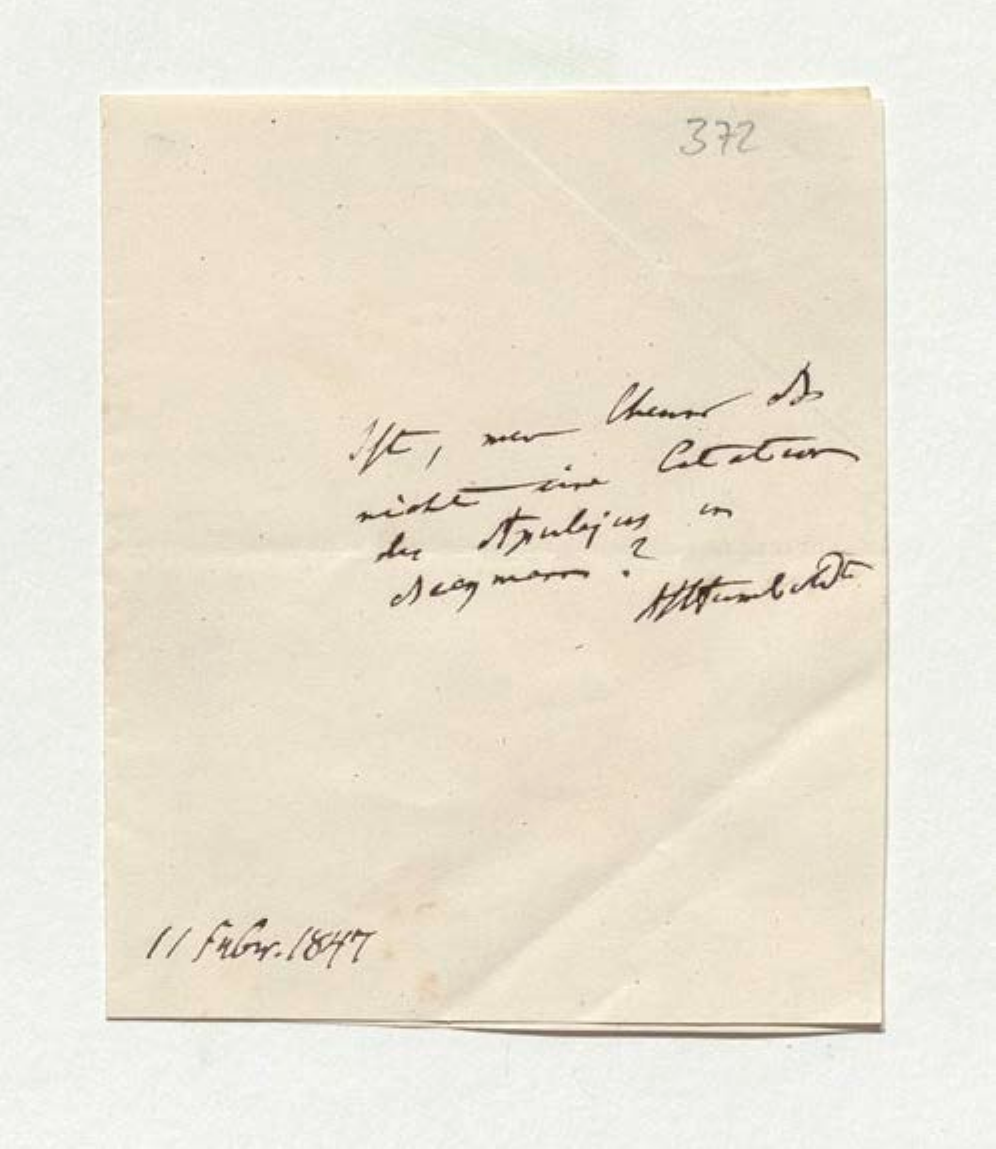 372
Ist, mein theurer
nicht eine Citation
des Apulejus in
? AlHumboldt
11 Febr. 1847